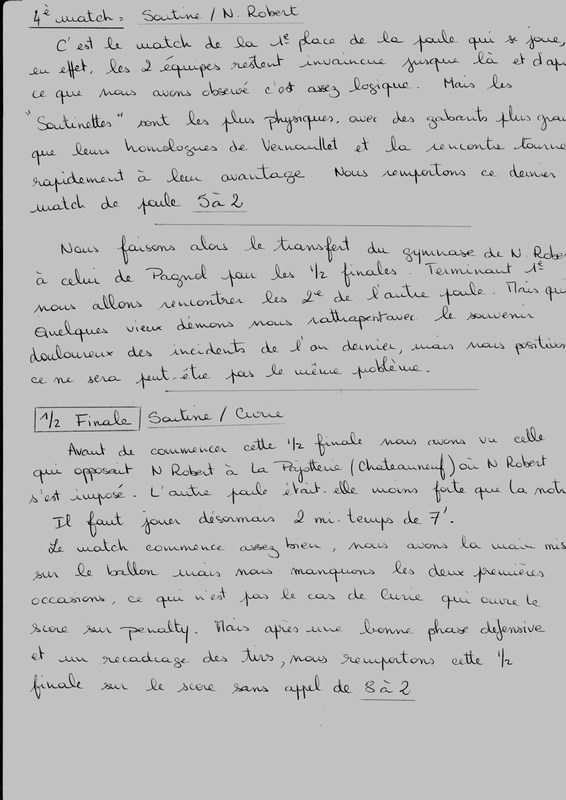 4è match : Soutine / N. Robert
C'est le match de la 1è place de la poule qui se joue,
en effet, les 2 équipes restent invaincue jusque là et d'ap
ce que nous avons observé c'est assez logique. Mais les
"Soutinettes" sont les plus physiques, avec des gabarits plus gran
que leurs homologues de Vernouillet et la rencontre tourne
rapidement à leur avantage. Nous remportons ce dernier
match de poule 5 à 2
Nous faisons alors le transfert du gymnase de N. Rober
à celui de Pagnol pour les 1/2 finales. Terminant 1è
nous allons rencontrer les 2e de l'autre poule. Mais qui
Quelques vieux démons nous rattrapent avec le souvenir
douloureux des incidents de l'an dernier, mais nous positivon
ce ne sera peut-être pas le même problème.
1/2 Finale Soutine / Curie
Avant de commencer cette 1/2 finale nous avons vu celle
qui opposait N Robert à La Pajotterie (Chateauneuf) où N Robert
s'est imposé. L'autre poule était-elle moins forte que la notr
Il faut jouer désormais 2 mi-temps de 7'.
Le match commence assez bien, nous avons la main mis
sur le ballon mais nous manquons les deux premières
occasions, ce qui n'est pas le cas de Curie qui ouvre le
score sur penalty. Mais après une bonne phase defensive
et un recadrage des tirs, nous remportons cette 1/2
finale sur le score sans appel de 8 à 2